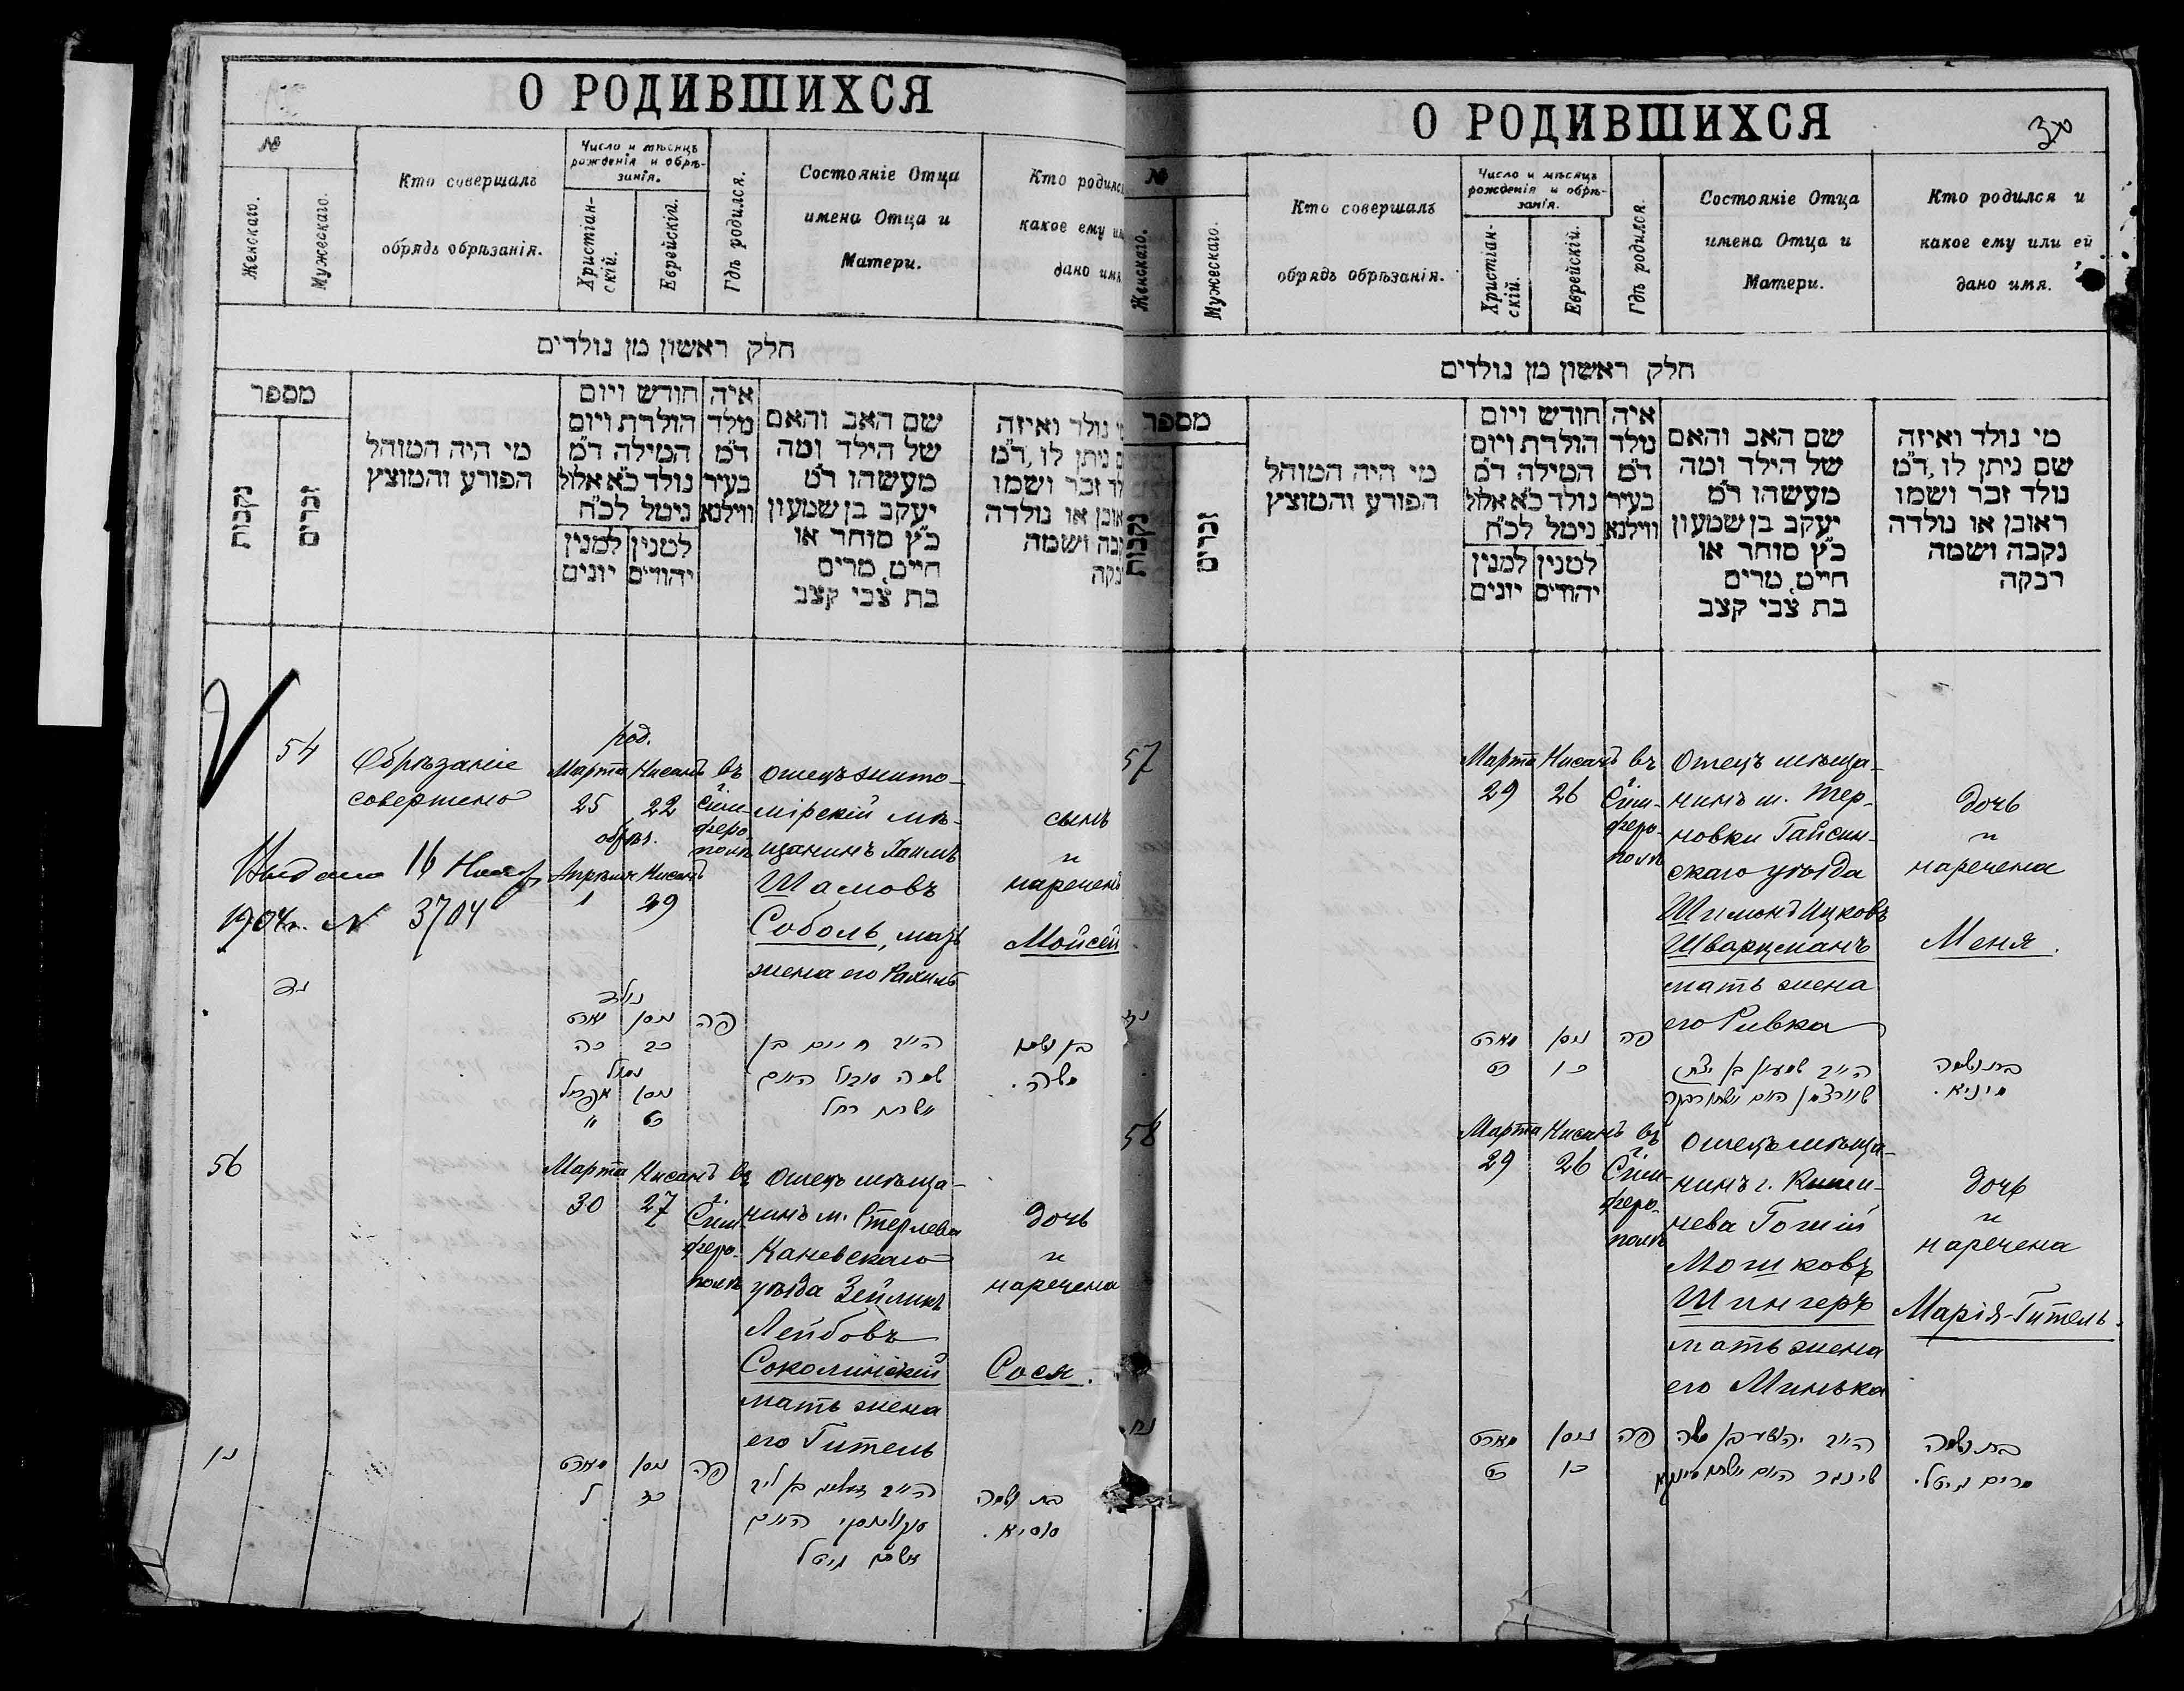 О РОДИВШИХСЯ
№
Женскаго.
Мужескаго.
Кто совершалъ
обрядъ обрѣзанія.
Число и мѣсяцъ
рожденія и обрѣ-
занія.
Христіан-
скій.
Еврейскій.
Гдѣ родился.
Состояніе Отца
имена Отца и
Матери.
Кто родился
какое ему
дано имя
חלק ראשון מן נולדים
מספר
נקבות
זכרים
מי היה המוהל
הפורע והמוצץ
חודש ויום
הולדת ויום
המילה ד״מ
נולד כ״א אלול
ניטל לכ״ח
למנין למנין
יהודים יונים
איה
מלד
ד״מ
בעיר
ווילנא
שם האב והאם
של הילד ומה
מעשהו ד״מ
יעקב בן שמעון
כ״ץ סוחר או
חייט, מרים
בת צבי קצב
נולד ואיזה
ניתן לו, ד״מ
זכר ושמו
או נולדה
ושמה
54
Обрѣзаніе
совершено
род.
Марта Нисанъ
25 22
обрѣз.
Апрѣля Нисанъ
1 29
въ
г.
Сим-
феро-
полѣ
отецъ жито-
мірскій мѣ-
щанинъ Хаимъ
Шамовъ
Соболь, мать
жена его Рахиль
сынъ
и
нареченъ
Мойсей
Выдано 16 Нояб.
1904 г. № 3704
נד
נולד
ניסן מארט
כב כה
נמול
ניסן אפריל
כט
פה
חיים בן
סובול האם
אשתו רחל
בן ושמו
משה.
56
Марта Нисанъ
30 27
въ
г.
Сим-
феро-
полѣ
Отецъ мѣща-
нинъ м. Степлева
Каневскаго
уѣзда Зейликъ
Лейбовъ
Соколинскій
мать жена
его Гитель
дочь
и
наречена
Сося.
נו
ניסן מארט
כז ל
פה
בן ליב
סקולינסקי האם
אשתו גיטל
בת ושמה
סוסיא.
О РОДИВШИХСЯ
30
№
Женскаго.
Мужескаго.
Кто совершалъ
обрядъ обрѣзанія.
Число и мѣсяцъ
рожденія и обрѣ-
занія.
Христіан-
скій.
Еврейскій.
Гдѣ родился.
Состояніе Отца
имена Отца и
Матери.
Кто родился и
какое ему или ей
дано имя.
חלק ראשון מן נולדים
מספר
נקבות
זכרים
מי היה המוהל
הפורע והמוצץ
חודש ויום
הולדת ויום
המילה ד״מ
נולד כ״א אלול
ניטל לכ״ח
למנין למנין
יהודים יונים
איה
מלד
ד״מ
בעיר
ווילנא
שם האב והאם
של הילד ומה
מעשהו ד״מ
יעקב בן שמעון
כ״ץ סוחר או
חייט, מרים
בת צבי קצב
מי נולד ואיזה
שם ניתן לו, ד״מ
נולד זכר ושמו
ראובן או נולדה
נקבה ושמה
רבקה
57
Марта Нисанъ
29 26
въ
г.
Сим-
феро-
полѣ
Отецъ мѣща-
нинъ м. Тер-
новки Гайсин-
скаго уѣзда
Шимонъ Ицковъ
Шварцманъ
мать жена
его Ривка
дочь
и
наречена
Меня.
נז
ניסן מארט
כו כט
פה
שמעון בן יצחק
שווארצמן האם אשתו רבקה
בת ושמה
מיניא.
58
Марта Нисанъ
29 26
въ
г.
Сим-
феро-
полѣ
Отецъ мѣща-
нинъ г. Киши-
нева Гошій
Мошковъ
Шингеръ
мать жена
его Минька
дочь
и
наречена
Марія-Гитель.
נח
ניסן מארט
כו כט
פה
יהושע בן משה
שינגר האם אשתו מינקא
בת ושמה
מרים גיטל.